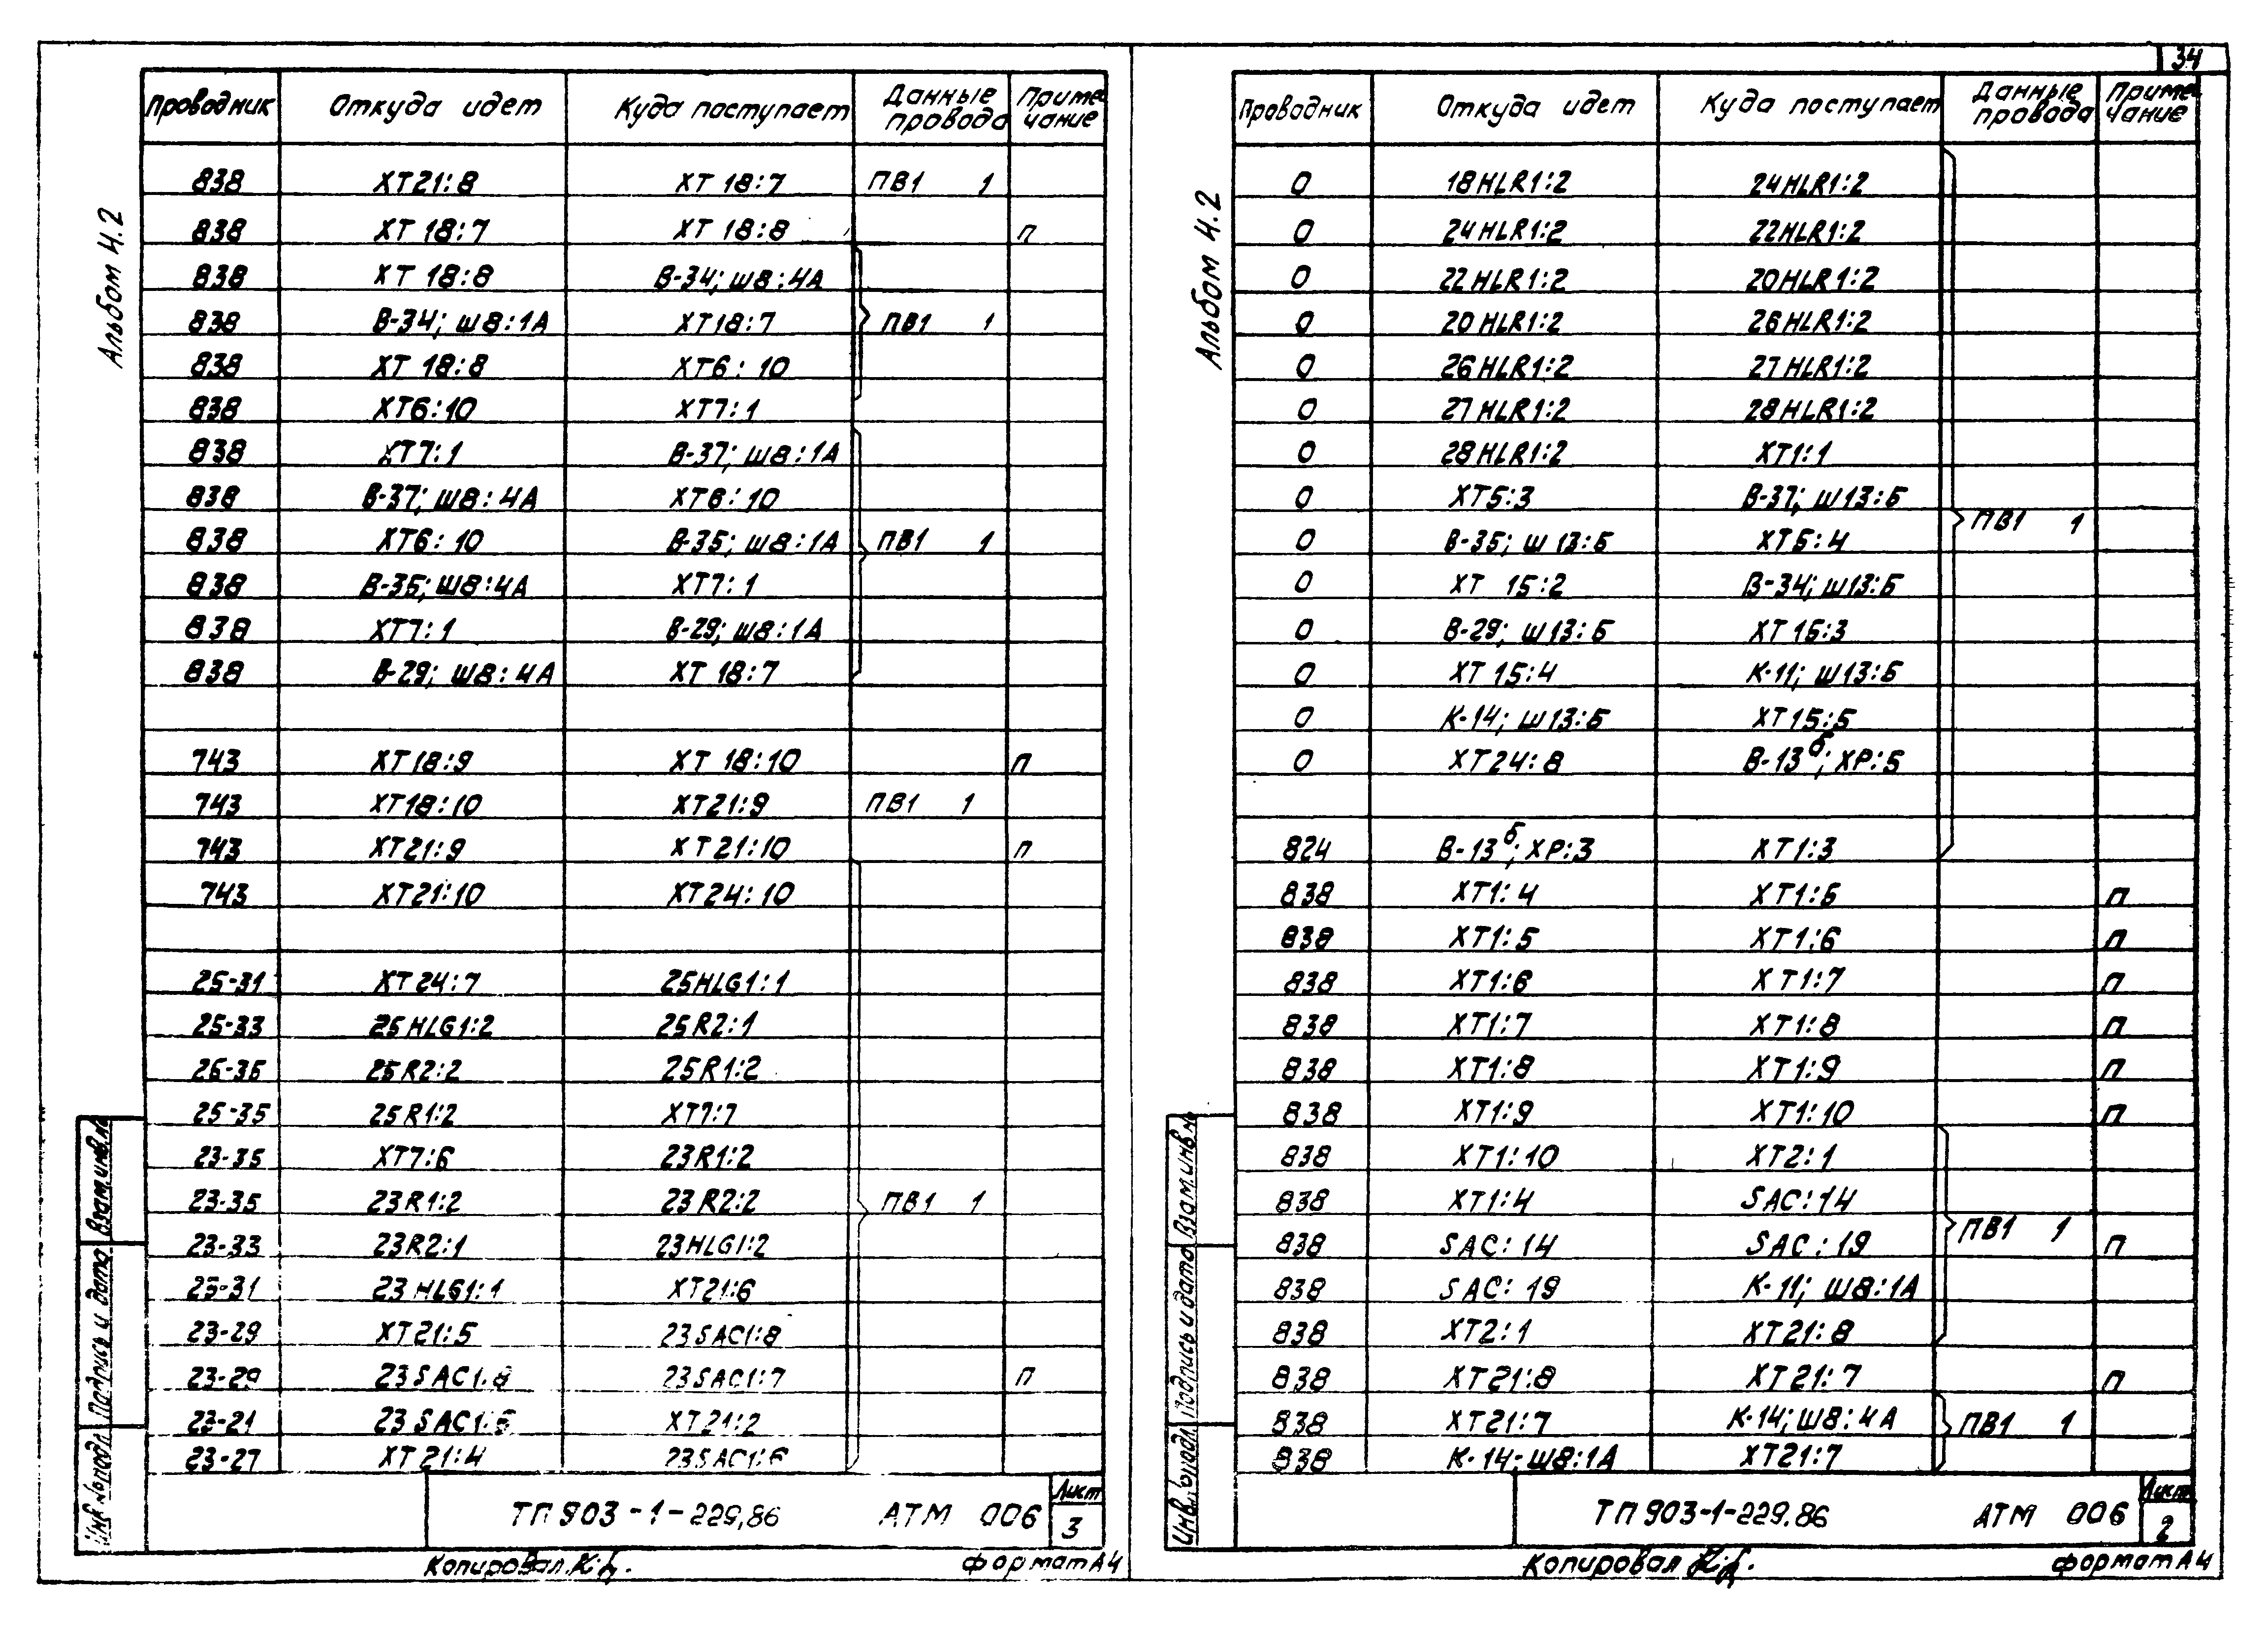 34
Альбом 4.2
Проводник Откуда идет Куда поступает Данные провода Примечание
838 ХТ21:8 ХТ 18:7 ПВ1 1
838 ХТ 18:7 ХТ 18:8 п
838 ХТ 18:8 В-34; Ш8:4А
838 В-34; Ш8:1А ХТ18:7 ПВ1 1
838 ХТ 18:8 ХТ6:10
838 ХТ6:10 ХТ7:1
838 ХТ7:1 В-37; Ш8:1А
838 В-37; Ш8:4А ХТ6:10
838 ХТ6:10 В-35; Ш8:1А ПВ1 1
838 В-35; Ш8:4А ХТ7:1
838 ХТ7:1 В-29; Ш8:1А
838 В-29; Ш8:4А ХТ 18:7
743 ХТ18:9 ХТ 18:10 п
743 ХТ18:10 ХТ21:9 ПВ1 1
743 ХТ21:9 ХТ21:10 п
743 ХТ21:10 ХТ24:10
25-31 ХТ24:7 25HLG1:1
25-33 25HLG1:2 25R2:1
25-35 25R2:2 25R1:2
25-35 25R1:2 ХТ7:7
23-35 ХТ7:6 23R1:2
23-35 23R1:2 23R2:2 ПВ1 1
23-33 23R2:1 23HLG1:2
23-31 23HLG1:1 ХТ21:6
23-29 ХТ21:5 23SAC1:8
23-29 23SAC1:8 23SAC1:7 п
23-21 23SAC1:5 ХТ21:2
23-27 ХТ21:4 23SAC1:6
Взам.инв.№
Подпись и дата
Инв.№подл.
ТП 903-1-229.86 АТМ 006 Лист 3
Копировал формат А4
Альбом 4.2
Проводник Откуда идет Куда поступает Данные провода Примечание
0 18HLR1:2 24HLR1:2
0 24HLR1:2 22HLR1:2
0 22HLR1:2 20HLR1:2
0 20HLR1:2 26HLR1:2
0 26HLR1:2 27HLR1:2
0 27HLR1:2 28HLR1:2
0 28HLR1:2 ХТ1:1
0 ХТ5:3 В-37; Ш13:Б
0 В-35; Ш13:Б ХТ5:4 ПВ1 1
0 ХТ 15:2 В-34; Ш13:Б
0 В-29; Ш13:Б ХТ15:3
0 ХТ15:4 К-11; Ш13:Б
0 К-14; Ш13:Б ХТ15:5
0 ХТ24:8 В-13б; ХР:5
824 В-13б; ХР:3 ХТ1:3
838 ХТ1:4 ХТ1:5 п
838 ХТ1:5 ХТ1:6 п
838 ХТ1:6 ХТ1:7 п
838 ХТ1:7 ХТ1:8 п
838 ХТ1:8 ХТ1:9 п
838 ХТ1:9 ХТ1:10 п
838 ХТ1:10 ХТ2:1
838 ХТ1:4 SAC:14
838 SAC:14 SAC:19 ПВ1 1 п
838 SAC:19 К-11; Ш8:1А
838 ХТ2:1 ХТ21:8
838 ХТ21:8 ХТ21:7 п
838 ХТ21:7 К-14; Ш8:4А ПВ1 1
838 К-14; Ш8:1А ХТ21:7
Взам.инв.№
Подпись и дата
Инв.№подл.
ТП 903-1-229.86 АТМ 006 Лист 2
Копировал формат А4